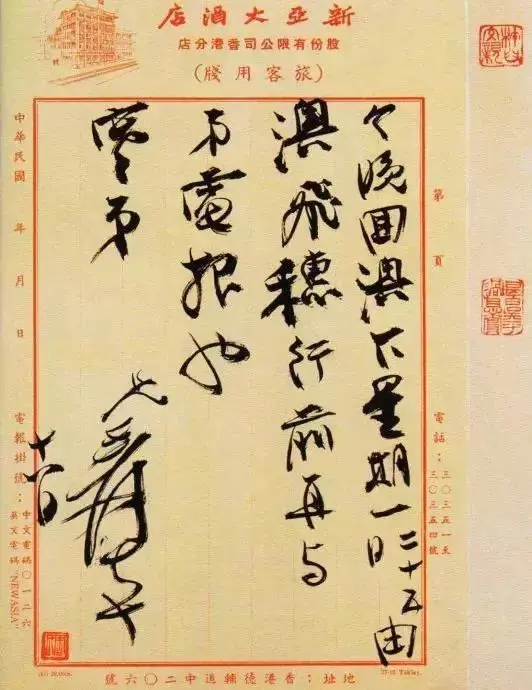 新亞大酒店
股份有限公司香港分店
(旅客用牋)
第 頁
電話：三〇三五一至三〇三五四號
今晚回澳下星期一日二十五由
澳飛穗行前再与
弟電報也
弟
兄 爰 十八日
中華民國 年 月 日
電報掛號：中文電碼〇一二六
英文電碼 "NEWASIA"
地址：香港德輔道中二〇六號